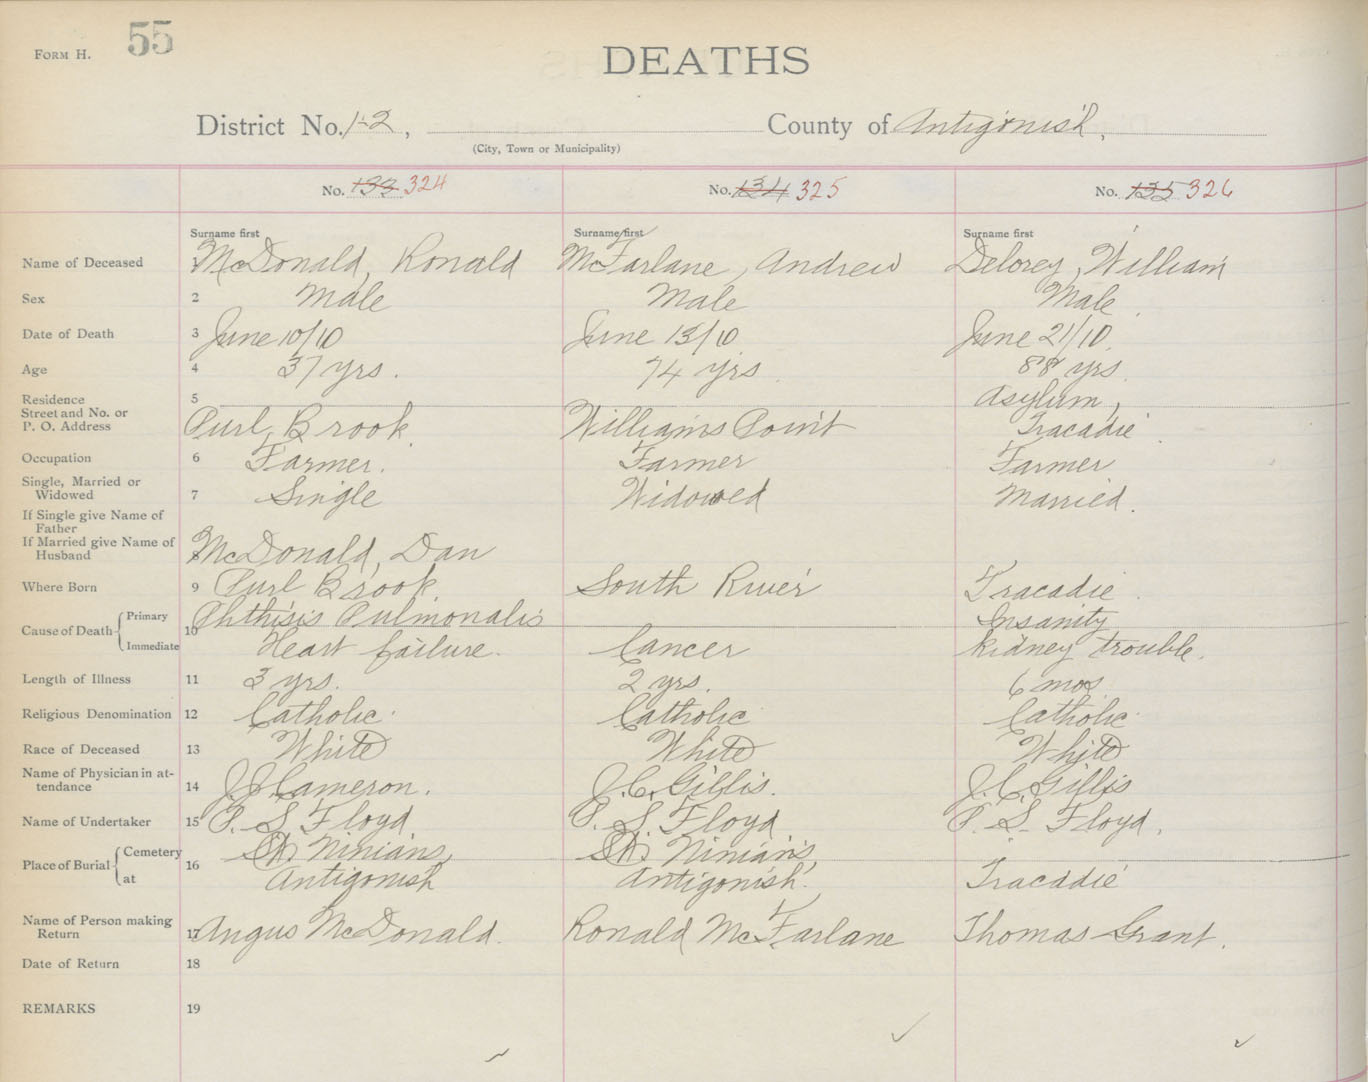 FORM H. 55
DEATHS
District No. 1-2, County of Antigonish,
(City, Town or Municipality)
No. 133 324 No. 134 325 No. 135 326
Surname first Surname first Surname first
Name of Deceased 1 McDonald, Ronald McFarlane, Andrew Delorey, William
Sex 2 Male Male Male
Date of Death 3 June 10/10 June 13/10 June 21/10
Age 4 37 yrs. 74 yrs 88 yrs
Residence 5 Asylum,
Street and No. or
P. O. Address Purl Brook Williams Point Tracadie
Occupation 6 Farmer. Farmer Farmer
Single, Married or
Widowed 7 Single Widowed Married.
If Single give Name of
Father
If Married give Name of
Husband 8 McDonald, Dan
Where Born 9 Purl Brook South River Tracadie
Cause of Death 10 Primary Phthisis Pulmonalis Insanity
Immediate Heart failure. Cancer kidney trouble.
Length of Illness 11 3 yrs. 2 yrs. 6 mos
Religious Denomination 12 Catholic Catholic Catholic
Race of Deceased 13 White White White
Name of Physician in at-
tendance 14 J.J. Cameron. J.C. Gillis. J.C. Gillis
Name of Undertaker 15 P. S. Floyd P. S. Floyd P. S. Floyd.
Place of Burial 16 Cemetery St. Ninians, St. Ninian's,
at Antigonish Antigonish. Tracadie
Name of Person making
Return 17 Angus McDonald. Ronald McFarlane Thomas Grant.
Date of Return 18
REMARKS 19